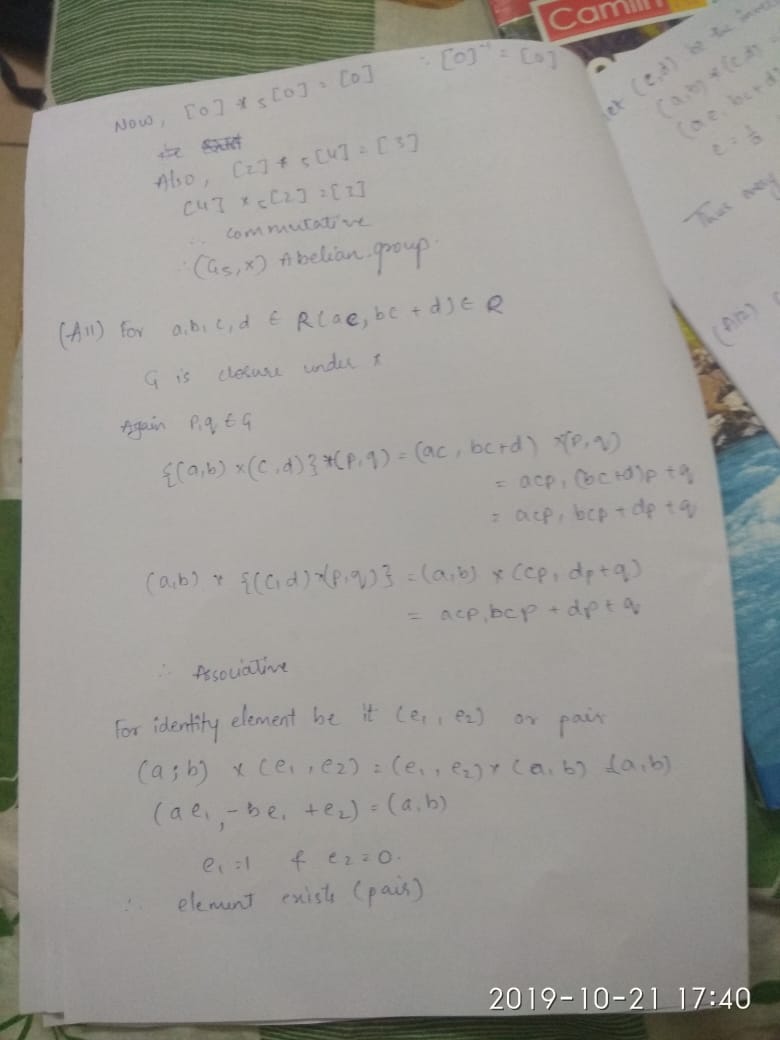 Camlin
Now, [0] *₅ [0] = [0] ∴ [0]⁻¹ = [0]
Also, [2] *₅ [4] = [3]
[4] *₅ [2] = [3]
∴ commutative
∴ (G₅, x) Abelian group.
(A11) For a,b,c,d ∈ R(ac, bc + d) ∈ R
G is closure under *
Again p,q ∈ G
{(a,b) x (c,d)} *(p,q) = (ac, bc+d) *(p,q)
= acp, (bc+d)p + q
= acp, bcp + dp + q
(a,b) * {(c,d)*(p,q)} = (a,b) * (cp, dp+q)
= acp, bcp + dp + q
∴ Associative
For identity element be it (e₁, e₂) or pair
(a,b) x (e₁, e₂) = (e₁, e₂) * (a,b) = (a,b)
(ae₁, -be₁ + e₂) = (a,b)
e₁ = 1 & e₂ = 0.
∴ element exists (pair)
let (c,d) be the
(a,b) * (c,d) =
(ac, bc+d)
Thus every
(A12)
2019-10-21 17:40